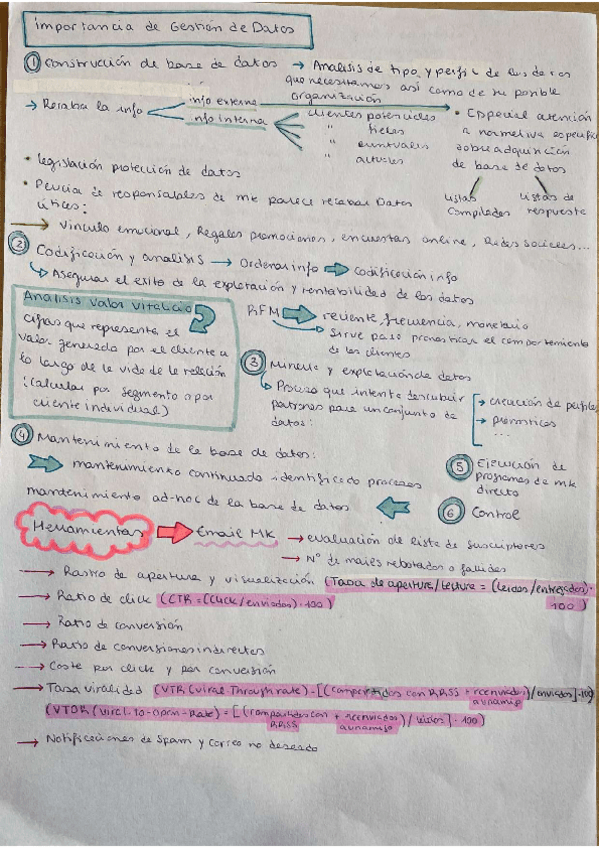 importancia de Gestión de Datos
① construcción de base de datos → Analisis de tipo y perfil de los datos
que necesitamos así como de su posible
organización
→ Recaba la info
info externa
info interna
clientes potenciales
" fieles
" eventuales
" actuales
• Especial atención
a normativa especifica
sobre adquisición
de base de datos
listas
compiladas
listas de
respuesta
• legislación protección de datos
• Pericia de responsables de mk para recabar Datos
útiles:
→ Vinculo emocional, Regalos promociones, encuestas online, Redes sociales...
② Codificación y analisis → Ordenar info ⇒ codificación info
↳ Asegurar el exito de la explotación y rentabilidad de los datos
Analisis Valor Vitalicio
cifras que representa el
valor generado por el cliente a
lo largo de la vida de la relación
(calcular por segmento o por
cliente individual)
RFM ⇒ reciente, frecuencia, monetario
→ sirve para pronosticar el comportamiento
de los clientes
③ Mineria y explotación de datos
↳ Proceso que intenta descubrir
patrones para un conjunto de
datos:
→ creación de perfiles
→ pronosticos
...
④ Mantenimiento de la base de datos:
⇒ mantenimiento continuado identificado procesos
mantenimiento ad-hoc de la base de datos ⇐
⑤ Ejecución de
programas de mk
directo
⑥ Control
Herramientas ⇒ Email MK → evaluación de lista de suscriptores
→ Nº de mailes rebotados o fallidos
→ Rastro de apertura y visualización (Tasa de apertura/lectura = (leidos/entregados)·
100)
→ Ratio de click (CTR = (click/enviados)·100)
→ Ratio de conversión
→ Ratio de conversiones indirectas
→ Coste por click y por conversión
→ Tasa viralidad (VTR (viral Through rate) = [(compartidos con RRSS + reenviados
a un amigo)/enviados]·100)
(VTOR (viral-to-open-Rate) = [(compartidos con
RRSS + reenviados
a un amigo)/leidos]·100)
→ Notificaciones de Spam y correo no deseado